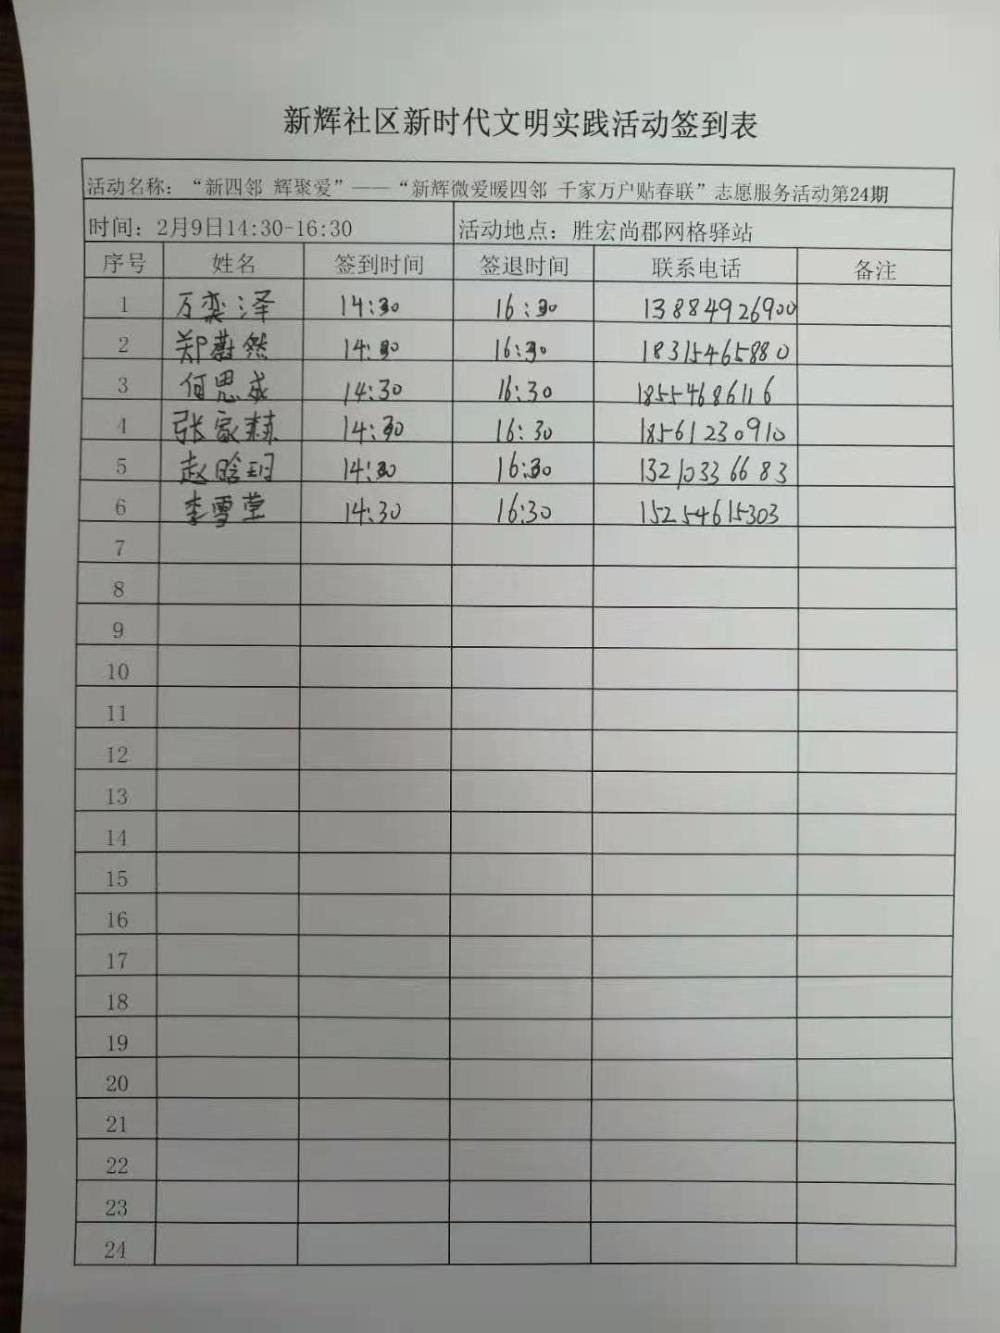 新辉社区新时代文明实践活动签到表
活动名称：“新四邻 辉聚爱”——“新辉微爱暖四邻 千家万户贴春联”志愿服务活动第24期
时间：2月9日14:30-16:30 活动地点：胜宏尚郡网格驿站
序号 姓名 签到时间 签退时间 联系电话 备注
1 万奕泽 14:30 16:30 13884926900
2 郑蔚然 14:30 16:30 18315465880
3 何思成 14:30 16:30 18554686116
4 张家赫 14:30 16:30 18561230910
5 赵晗玥 14:30 16:30 13210336683
6 李雪莹 14:30 16:30 15254615303
7
8
9
10
11
12
13
14
15
16
17
18
19
20
21
22
23
24